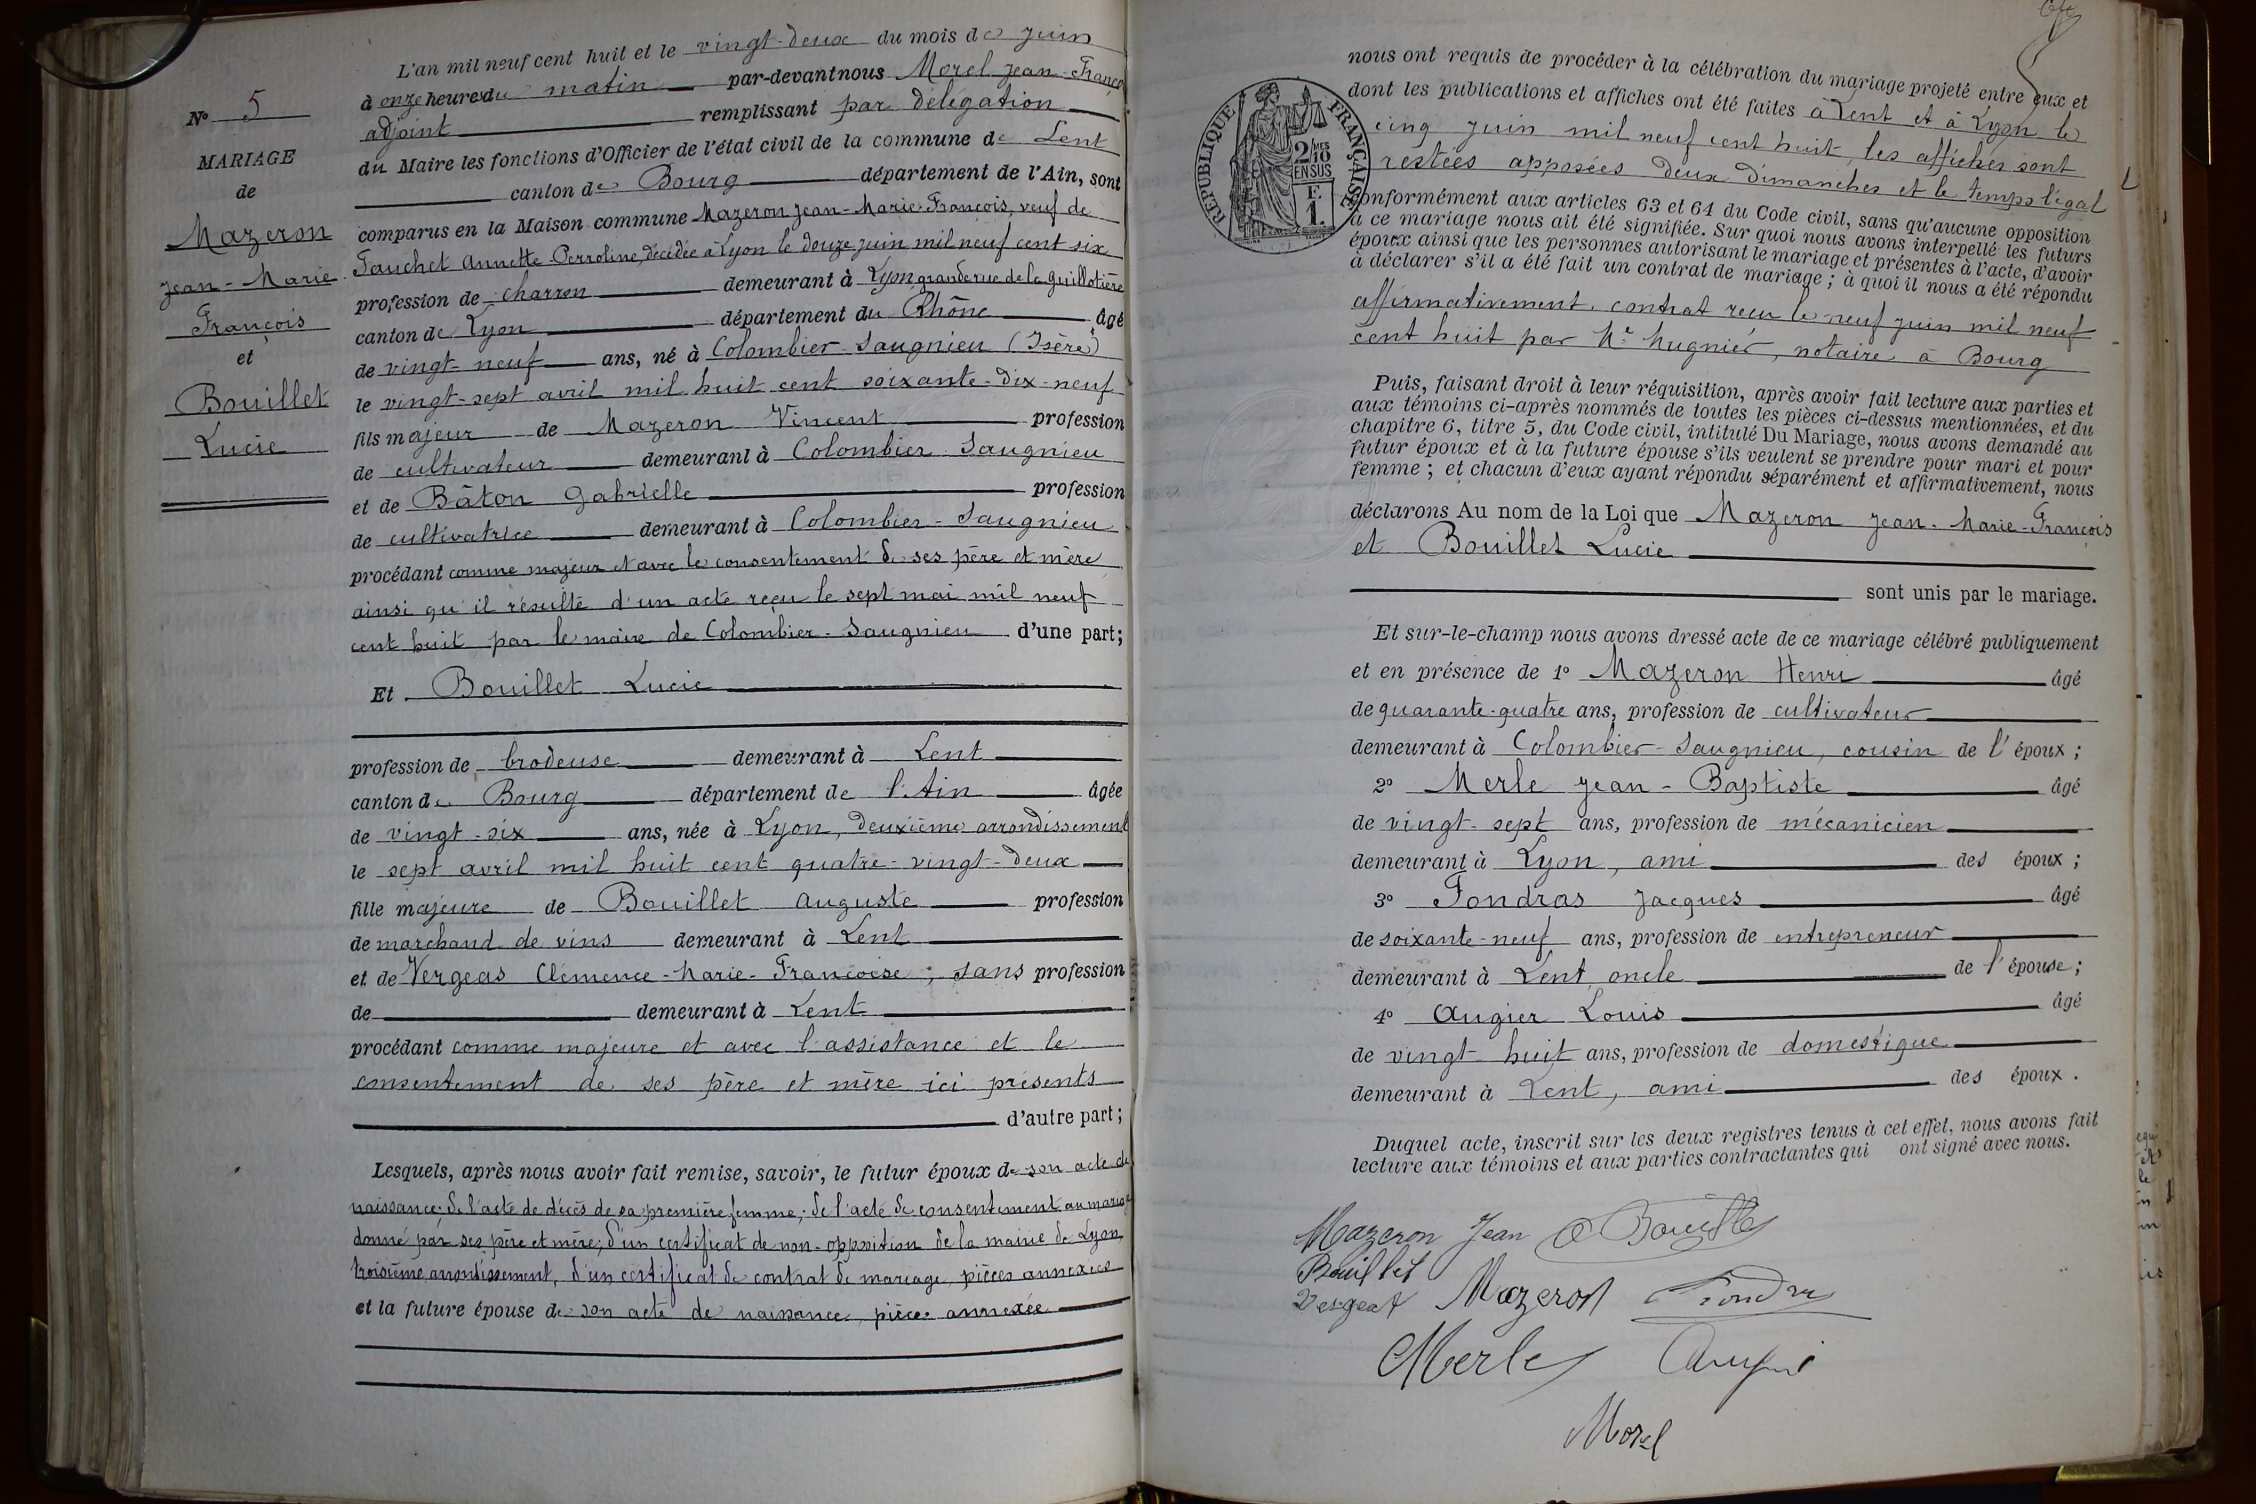 L'an mil neuf cent huit et le vingt-deux du mois de juin
à onze heures du matin par-devant nous Morel Jean-François
adjoint remplissant par délégation
du Maire les fonctions d'Officier de l'état civil de la commune de Lent
canton de Bourg département de l'Ain, sont
comparus en la Maison commune Mazeron Jean-Marie-François, veuf de
Fauchet Annette Perroline, décédée à Lyon le douze juin mil neuf cent six
profession de charron demeurant à Lyon grande rue de la Guillotière
canton de Lyon département du Rhône âgé
de vingt-neuf ans, né à Colombier-Saugnieu (Isère)
le vingt-sept avril mil huit cent soixante-dix-neuf
fils majeur de Mazeron Vincent profession
de cultivateur demeurant à Colombier Saugnieu
et de Bâton Gabrielle profession
de cultivatrice demeurant à Colombier-Saugnieu
procédant comme majeur et avec le consentement de ses père et mère
ainsi qu'il résulte d'un acte reçu le sept mai mil neuf
cent huit par le maire de Colombier-Saugnieu d'une part;
Et Bouillet Lucie
profession de brodeuse demeurant à Lent
canton de Bourg département de l'Ain âgée
de vingt-six ans, née à Lyon, deuxième arrondissement
le sept avril mil huit cent quatre-vingt-deux
fille majeure de Bouillet Auguste profession
de marchand de vins demeurant à Lent
et de Vergeas Clémence-Marie-Françoise; sans profession
de demeurant à Lent
procédant comme majeure et avec l'assistance et le
consentement de ses père et mère ici présents
d'autre part;
Lesquels, après nous avoir fait remise, savoir, le futur époux de son acte de
naissance; de l'acte de décès de sa première femme; de l'acte de consentement au mariage
donné par ses père et mère; d'un certificat de non-opposition de la mairie de Lyon
troisième arrondissement, d'un certificat de contrat de mariage, pièces annexées
et la future épouse de son acte de naissance, pièce annexée
No 5
MARIAGE
de
Mazeron
Jean-Marie
François
et
Bouillet
Lucie
nous ont requis de procéder à la célébration du mariage projeté entre eux et
dont les publications et affiches ont été faites à Lent et à Lyon le
cinq juin mil neuf cent huit, les affiches sont
restées apposées deux dimanches et le temps légal
conformément aux articles 63 et 64 du Code civil, sans qu'aucune opposition
à ce mariage nous ait été signifiée. Sur quoi nous avons interpellé les futurs
époux ainsi que les personnes autorisant le mariage et présentes à l'acte, d'avoir
à déclarer s'il a été fait un contrat de mariage; à quoi il nous a été répondu
affirmativement, contrat reçu le neuf juin mil neuf
cent huit par Me Mugnier, notaire à Bourg
Puis, faisant droit à leur réquisition, après avoir fait lecture aux parties et
aux témoins ci-après nommés de toutes les pièces ci-dessus mentionnées, et du
chapitre 6, titre 5, du Code civil, intitulé Du Mariage, nous avons demandé au
futur époux et à la future épouse s'ils veulent se prendre pour mari et pour
femme; et chacun d'eux ayant répondu séparément et affirmativement, nous
déclarons Au nom de la Loi que Mazeron Jean-Marie-François
et Bouillet Lucie
sont unis par le mariage.
Et sur-le-champ nous avons dressé acte de ce mariage célébré publiquement
et en présence de 1o Mazeron Henri âgé
de quarante-quatre ans, profession de cultivateur
demeurant à Colombier-Saugnieu, cousin de l'époux;
2o Merle Jean-Baptiste âgé
de vingt-sept ans, profession de mécanicien
demeurant à Lyon, ami des époux;
3o Fondras Jacques âgé
de soixante-neuf ans, profession de entrepreneur
demeurant à Lent, oncle de l'épouse;
4o Augier Louis âgé
de vingt-huit ans, profession de domestique
demeurant à Lent, ami des époux.
Duquel acte, inscrit sur les deux registres tenus à cet effet, nous avons fait
lecture aux témoins et aux parties contractantes qui ont signé avec nous.
RÉPUBLIQUE FRANÇAISE
2/10 MES
EN SUS
F.
1.
Mazeron Jean
Bouillet
Mazeron
Merle
Morel